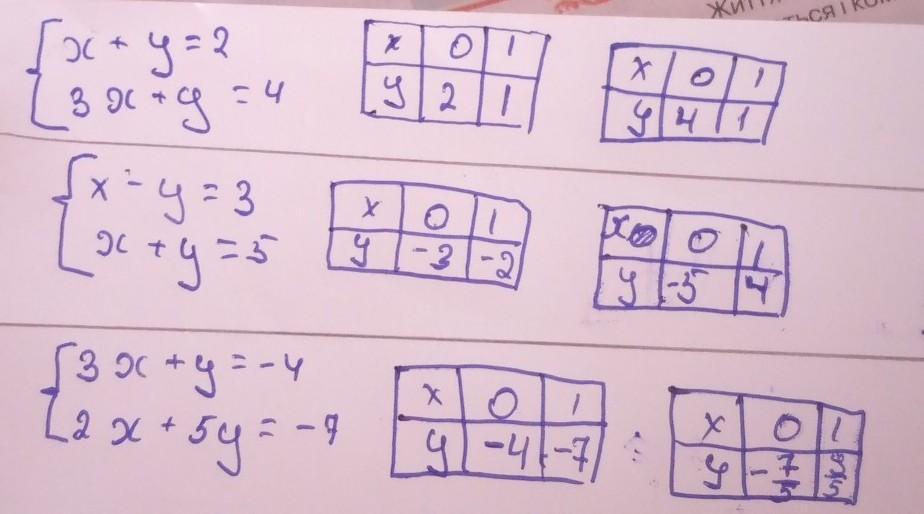 ЖИТТ
ТЬСЯ І КОМ
x + y = 2
3x + y = 4
x 0 1
y 2 1
x 0 1
y 4 1
x - y = 3
x + y = 5
x 0 1
y -3 -2
x 0 1
y -5 4
3x + y = -4
2x + 5y = -7
x 0 1
y -4 -7
x 0 1
y -7/5